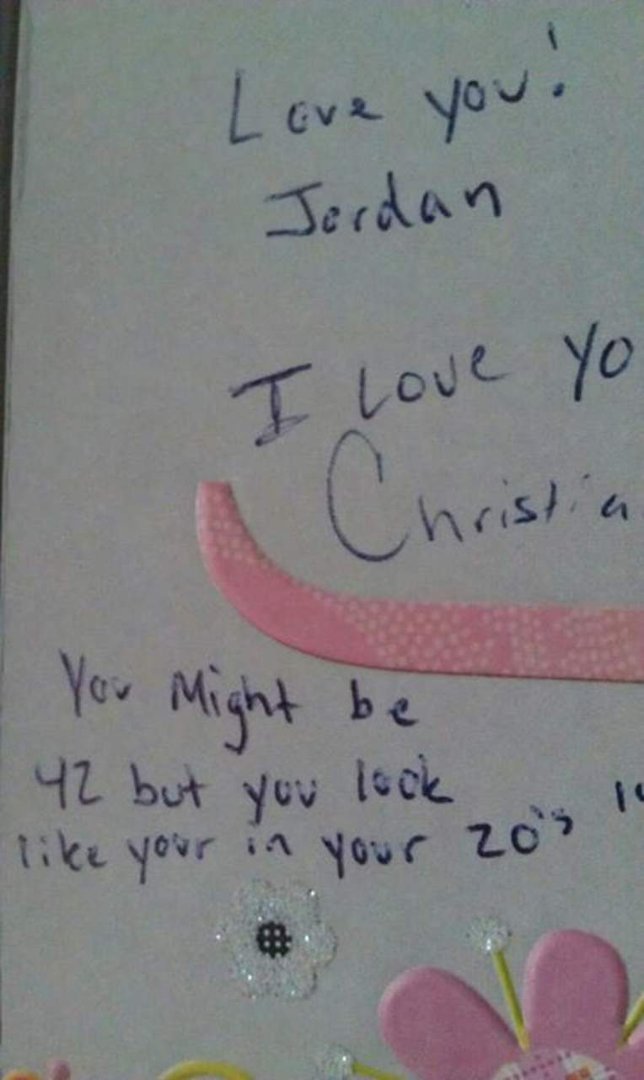 Love you!
Jordan
I Love yo
Christia
You Might be
42 but you look
like your in your 20's